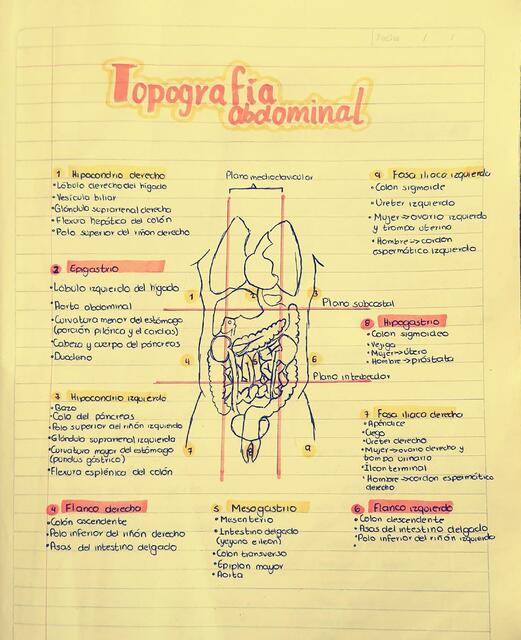 Fecha / /
Topografía
abdominal
1 Hipocondrio derecho
• Lóbulo derecho del hígado
• Vesícula biliar
• Glándula suprarrenal derecha
• Flexura hepática del colón
• Polo superior del riñon derecho
Plano medioclavicular
9 Fosa iliaca izquierda
• Colon sigmoide
• Ureter izquierdo
• Mujer→ovario izquierdo
y trompa uterina
• Hombre→cordón
espermático izquierdo
2 Epigastrio
• Lóbulo izquierdo del hígado
• Aorta abdominal
• Curvatura menor del estómago
(porción pilórica y el cardias)
• Cabeza y cuerpo del páncreas
• Duodeno
1
2
3
Plano subcostal
8 Hipogastrio
• Colon sigmoideo
• Vejiga
• Mujer→útero
• Hombre→próstata
4
5
6
Plano intertubercular
3 Hipocondrio izquierdo
• Bazo
• Cola del páncreas
• Polo superior del riñón izquierdo
• Glándula suprarrenal izquierda
• Curvatura mayor del estómago
(fundus gástrico)
• Flexura esplénica del colón
7 Fosa iliaca derecha
• Apéndice
• Ciego
• Ureter derecho
• Mujer→ovario derecho y
trompa urinario
• Ilcon terminal
• Hombre→cordon espermático
derecho
7
8
9
4 Flanco derecho
• Colón ascendente
• Polo inferior del riñón derecho
• Asas del intestino delgado
5 Mesogastrio
• Mesenterio
• Intestino delgado
(yeyuno e ileon)
• Colon transverso
• Epiplon mayor
• Aorta
6 Flanco izquierdo
• Colon descendente
• Asas del intestino delgado
• Polo inferior del riñón izquierdo
•